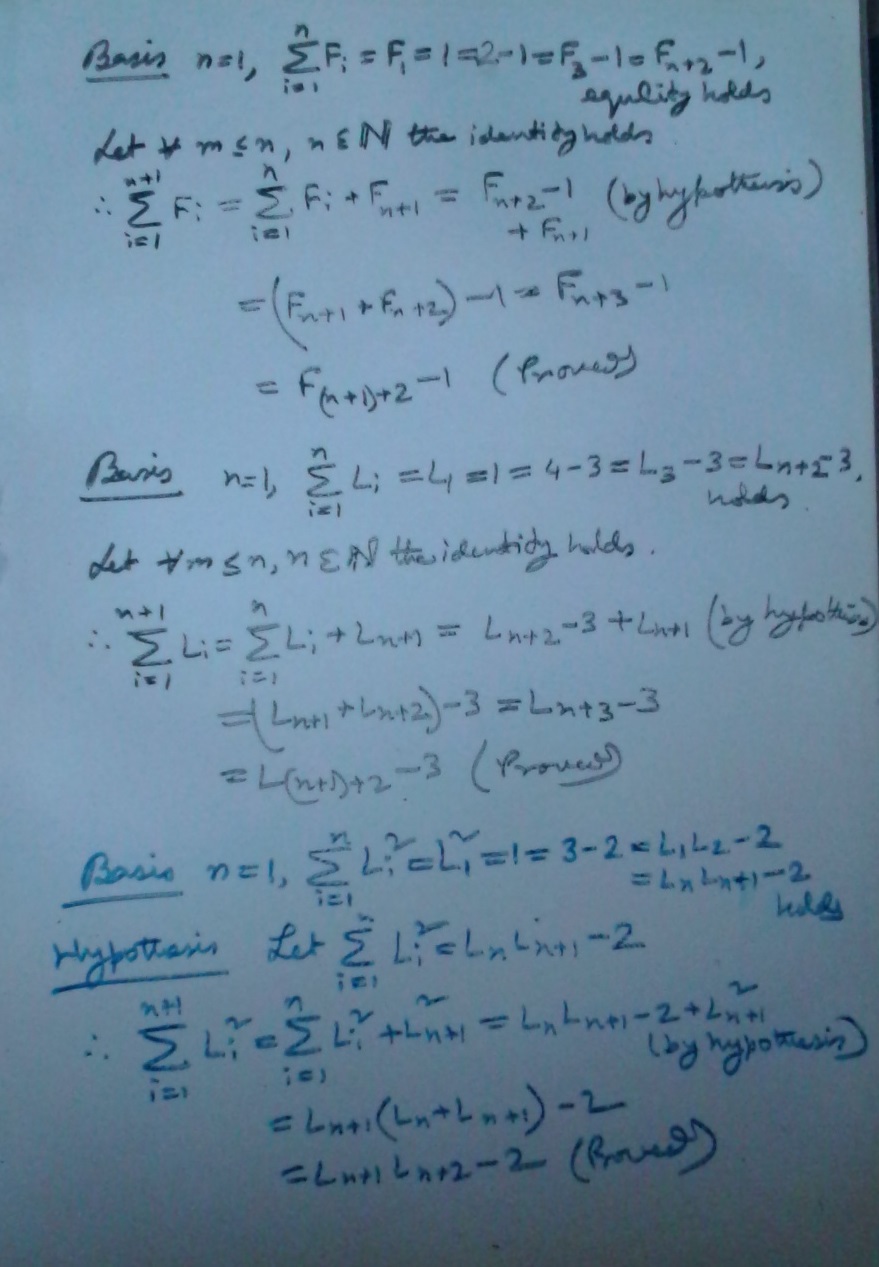 Basis n=1, n∑i=1 Fi = F1 = 1 = 2-1 = F3 -1 = Fn+2 -1,
equlity holds
Let ∀ m ≤ n, n ∈ ℕ the identity holds.
∴ n+1∑i=1 Fi = n∑i=1 Fi + Fn+1 = Fn+2 -1 (by hypothesis)
+ Fn+1
= (Fn+1 + Fn+2) -1 = Fn+3 -1
= F(n+1)+2 -1 (Proved)
Basis n=1, n∑i=1 Li = L1 = 1 = 4-3 = L3 -3 = Ln+2 -3,
holds.
Let ∀m ≤ n, n ∈ ℕ the identity holds.
∴ n+1∑i=1 Li = n∑i=1 Li + Ln+1 = Ln+2 -3 + Ln+1 (by hypothesis)
= (Ln+1 + Ln+2) -3 = Ln+3 -3
= L(n+1)+2 -3 (Proved)
Basis n=1, n∑i=1 Li² = L1² = 1 = 3-2 = L1L2 -2
= LnLn+1 -2
holds
Hypothesis Let n∑i=1 Li² = LnLn+1 -2
∴ n+1∑i=1 Li² = n∑i=1 Li² + L²n+1 = LnLn+1 -2 + L²n+1
(by hypothesis)
= Ln+1(Ln + Ln+1) -2
= Ln+1Ln+2 -2 (Proved)